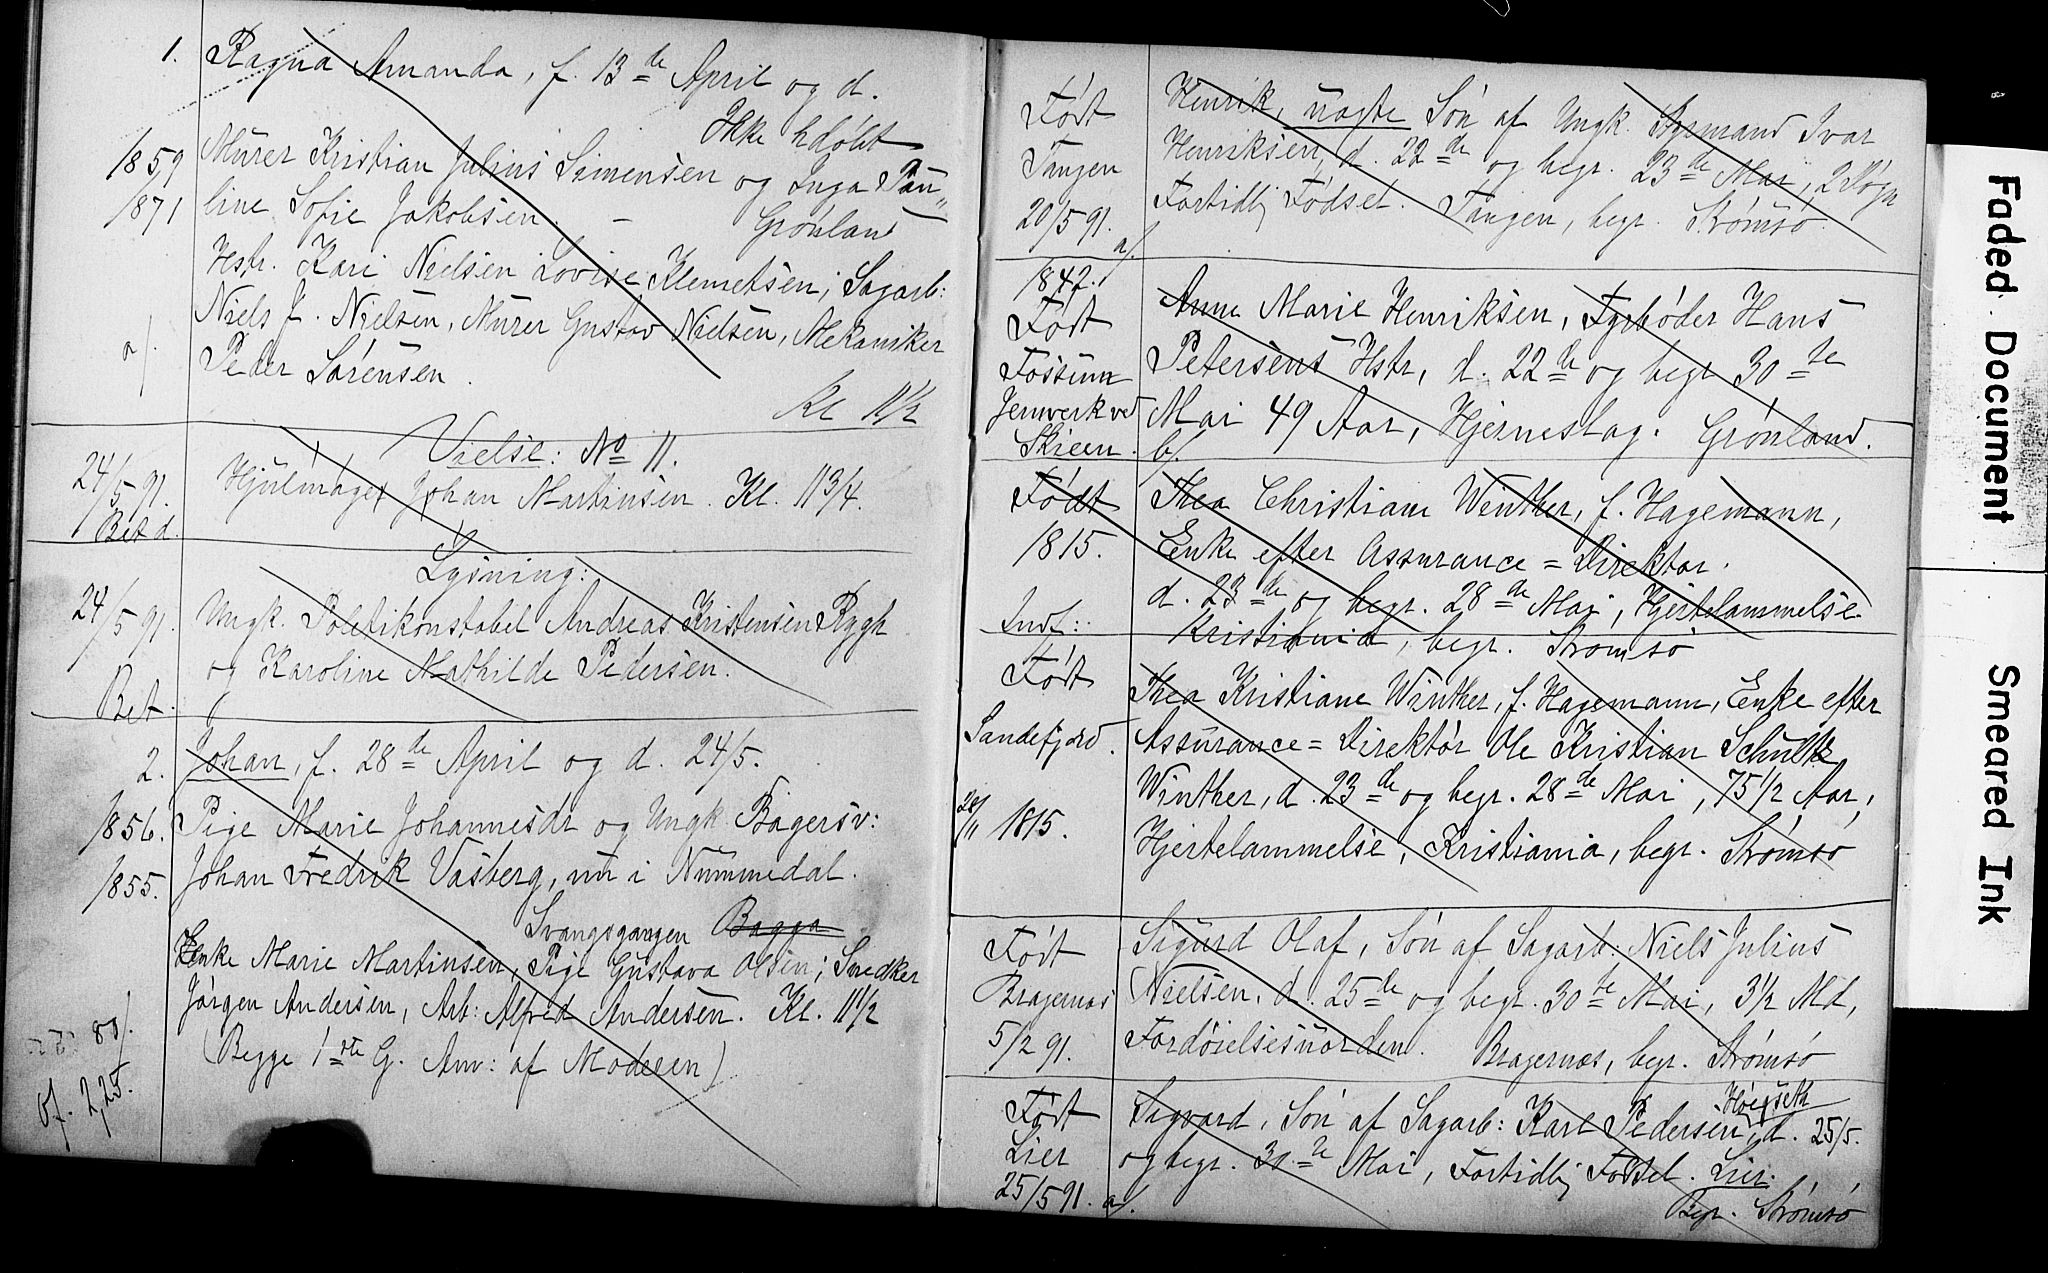 1. Ragna Amanda, f. 13de April og d.
Ikke hdøbt
1859 Murer Kristian Julius Simensen og Inga Pau„
1871 line Sofie Jakobsen. – Grønland
Hstr. Kari Nielsen Lovise Klemetsen; Sagarb:
Niels J. Nielsen, Murer Gustav Nielsen, Mekaniker
a/. Peder Sørensen.
Kl 11½
Vielse: No 11.
24/5 91. Hjulmager Johan Martinsen. Kl. 11 3/4.
Bet d.
Lysning:
24/5 91. Ungk. Politikonstabel Andreas Kristensen Rygh
og Karoline Mathilde Pedersen.
Bet.
2. Johan, f. 28de April og d. 24/5.
1856. Pige Marie Johannesdr og Ungk. Bagersv:
1855. Johan Fredrik Vasberg, nu i Nummedal.
Svangsgangen Bagga
Enke Marie Martinsen, Pige Gustava Olsen; Snedker
Jørgen Andersen, Arb: Alfred Andersen. Kl. 11½
80/. (Begge 1ste G. Anv: af Moderen)
Of. 2,25.
Født Henrik, uægte Søn af Ungk. Styrmand Ivar
Tangen Henriksen, d. 22de og begr. 23de Mai, 2 Døgn
20/5 91. Fortidlig Fødsel. Tangen, begr. Strømsø.
a/.
1842. Anne Marie Henriksen, Fyrbøder Hans
Født Petersens Hstr, d. 22de og begr 30te
Fossum Mai 49 Aar, Hjerneslag. Grønland.
Jernverk ved
Skieen. b/.
Født Thea Christiane Winther, f. Hagemann,
1815. Enke efter Assurance=Direktør.
d. 23de og begr. 28de Mai, Hjertelammelse.
Indf: Kristiania, begr. Strømsø
Født Thea Kristiane Winther, f. Hagemann, Enke efter
Sandefjord. Assurance=Direktør Ole Kristian Schultz
28/11 1815. Winther, d. 23de og begr. 28de Mai, 75½ Aar,
Hjertelammelse, Kristiania, begr. Strømsø
Født Sigurd Olaf, Søn af Sagarb: Niels Julius
Bragernæs Nielsen, d. 25de og begr. 30te Mai, 3½ Md,
5/2 91. Fordøielsesuorden. Bragernæs, begr. Strømsø
Høegseth
Født Sigvard, Søn af Sagarb: Karl Pedersen, d. 25/5.
Lier og begr. 30te Mai, Fortidlig Fødsel. Lier.
25/5 91. a/. Begr. Strømsø
Faded Document
Smeared Ink